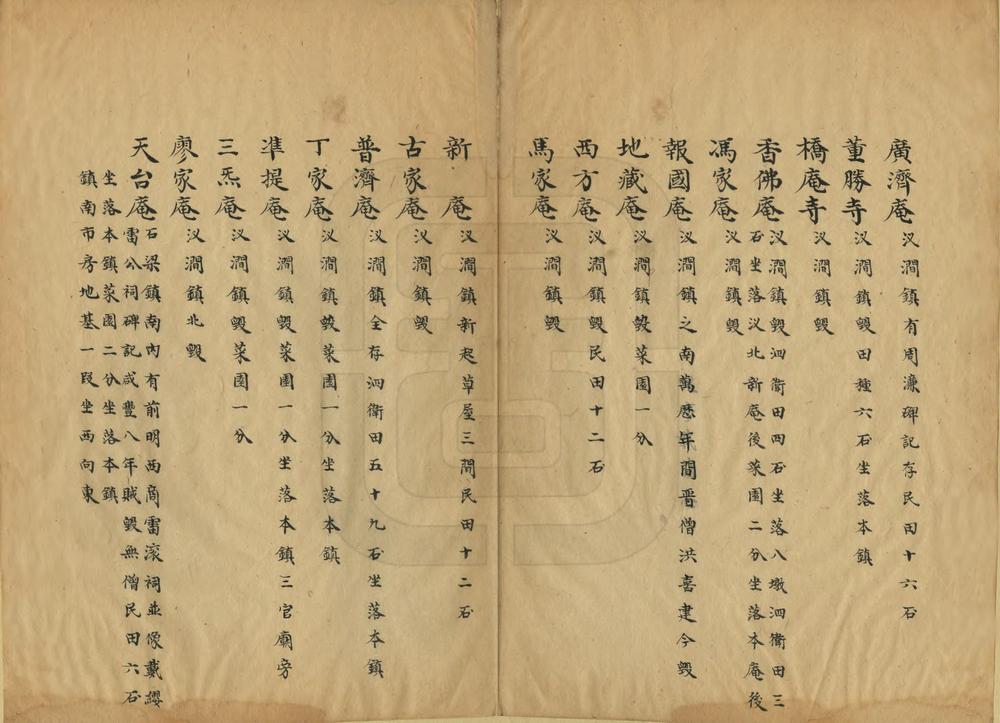 廣濟庵 汊澗鎮有周濂碑記存民田十六石
董勝寺 汊澗鎮毀田種六石坐落本鎮
橋庵寺 汊澗鎮毀
香佛庵 汊澗鎮毀泗衛田四石坐落八墩泗衛田三
石坐落汊北新庵後菜園二分坐落本庵後
馮家庵 汊澗鎮毀
報國庵 汊澗鎮之南萬歷年間晋僧洪喜建今毀
地藏庵 汊澗鎮毀菜園一分
西方庵 汊澗鎮毀民田十二石
馬家庵 汊澗鎮毀
新庵 汊澗鎮新起草屋三間民田十二石
古家庵 汊澗鎮毀
普濟庵 汊澗鎮全存泗衛田五十九石坐落本鎮
丁家庵 汊澗鎮毀菜園一分坐落本鎮
準提庵 汊澗鎮毀菜園一分坐落本鎮三官廟旁
三炁庵 汊澗鎮毀菜園一分
廖家庵 汊澗鎮北毀
天台庵 石梁鎮南内有前明西商雷滚祠並像戴纓
雷公祠碑記咸豐八年賊毀無僧民田六石
坐落本鎮菜園二分坐落本鎮
鎮南市房地基一段坐西向東